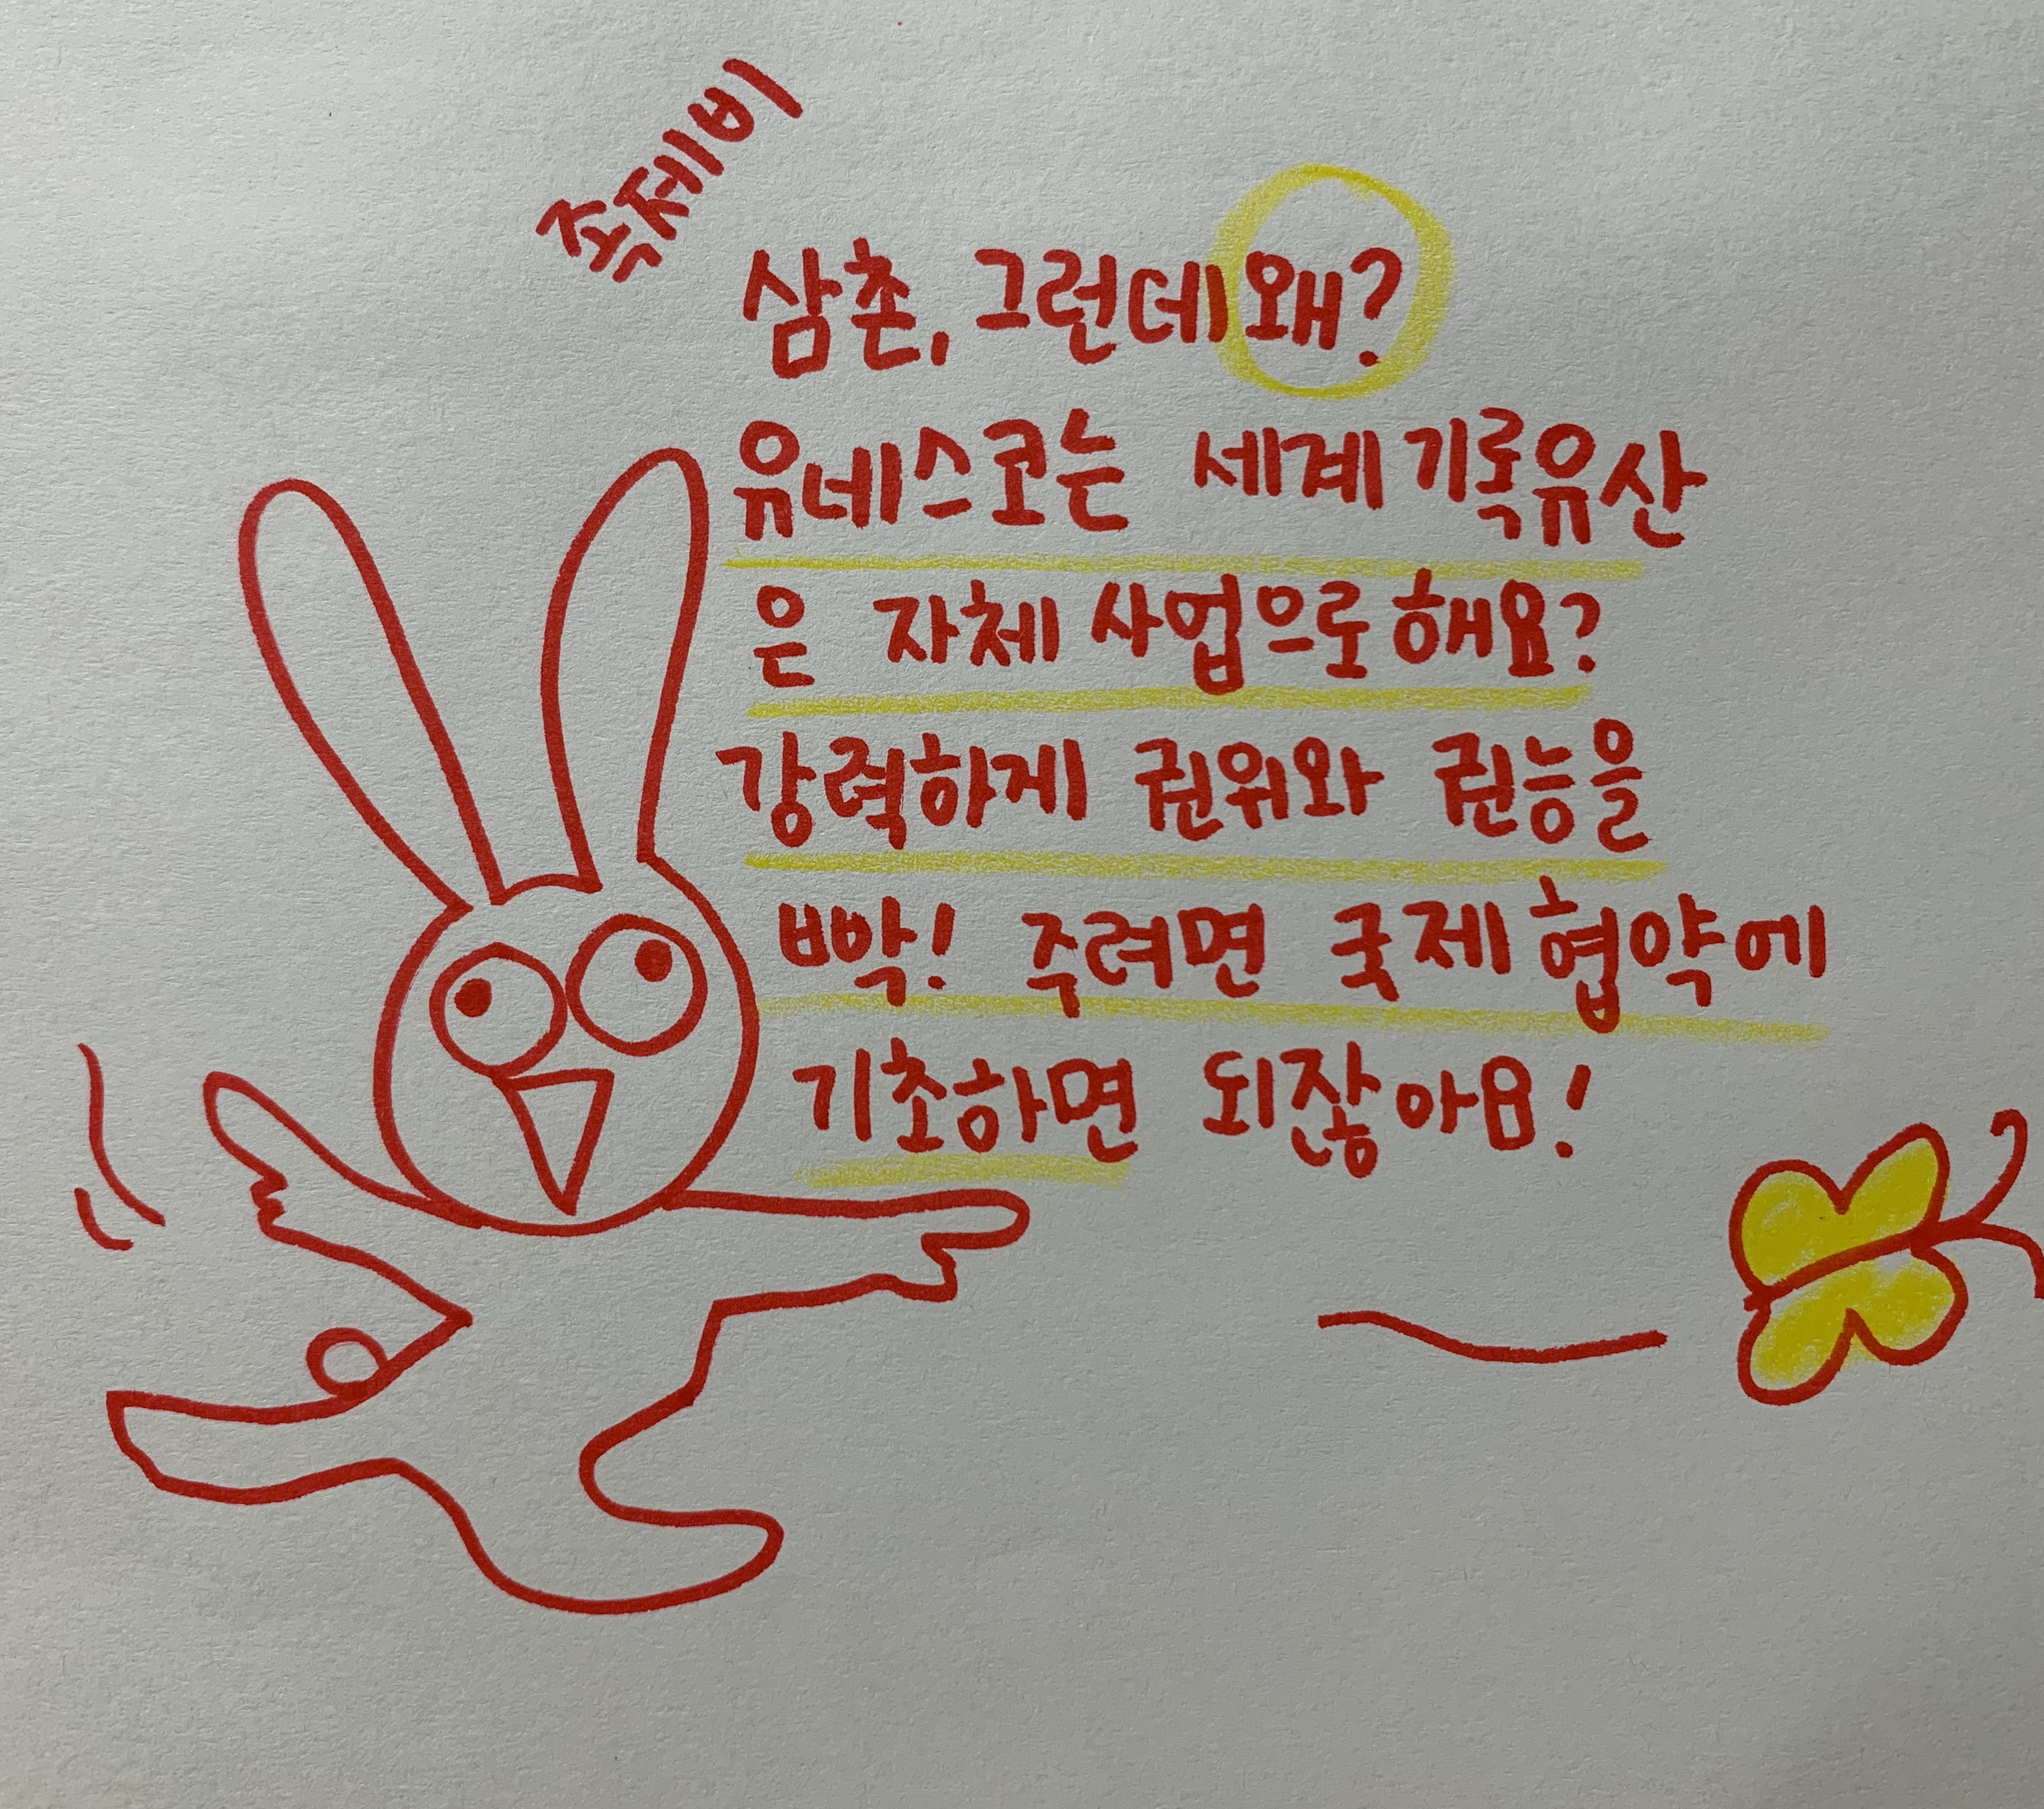 족제비
삼촌, 그런데 왜?
유네스코는 세계기록유산
은 자체 사업으로 해요?
강력하게 권위와 권능을
빡! 주려면 국제협약에
기초하면 되잖아요!